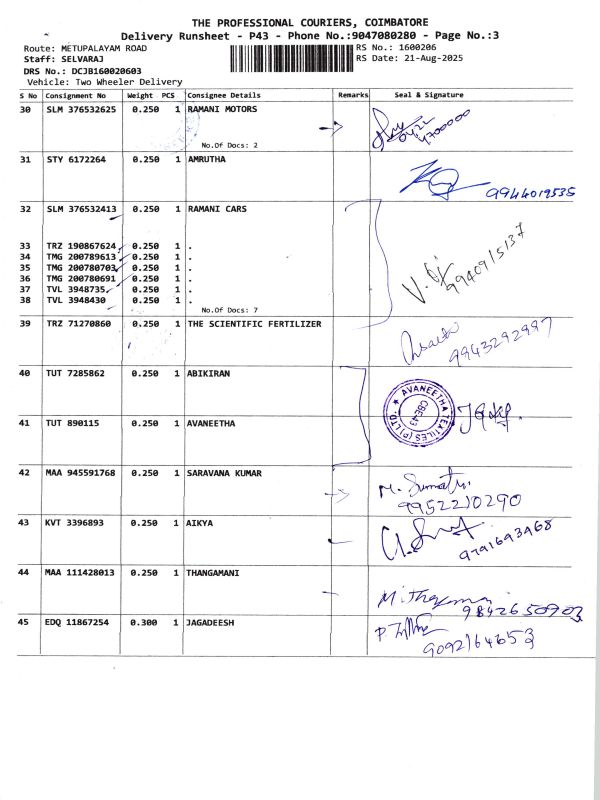 THE PROFESSIONAL COURIERS, COIMBATORE
Delivery Runsheet - P43 - Phone No.:9047080280 - Page No.:3
Route: METUPALAYAM ROAD
RS No.: 1600206
Staff: SELVARAJ
RS Date: 21-Aug-2025
DRS No.: DCJB160020603
Vehicle: Two Wheeler Delivery
S No Consignment No Weight PCS Consignee Details Remarks Seal & Signature
30 SLM 376532625 0.250 1 RAMANI MOTORS
0422
4700000
No.Of Docs: 2
31 STY 6172264 0.250 1 AMRUTHA
9944019535
32 SLM 376532413 0.250 1 RAMANI CARS
33 TRZ 190867624 0.250 1 .
34 TMG 200789613 0.250 1 .
35 TMG 200780703 0.250 1 .
36 TMG 200780691 0.250 1 .
37 TVL 3948735 0.250 1 .
38 TVL 3948430 0.250 1 .
No.Of Docs: 7
9940915137
39 TRZ 71270860 0.250 1 THE SCIENTIFIC FERTILIZER
9943292997
40 TUT 7285862 0.250 1 ABIKIRAN
AVANEETHA TEXTILES (P) LTD.
CBE-43
41 TUT 890115 0.250 1 AVANEETHA
42 MAA 945591768 0.250 1 SARAVANA KUMAR
M. Sumathi
9952210290
43 KVT 3396893 0.250 1 AIKYA
9791693968
44 MAA 111428013 0.250 1 THANGAMANI
9842650903
45 EDQ 11867254 0.300 1 JAGADEESH
9092164653